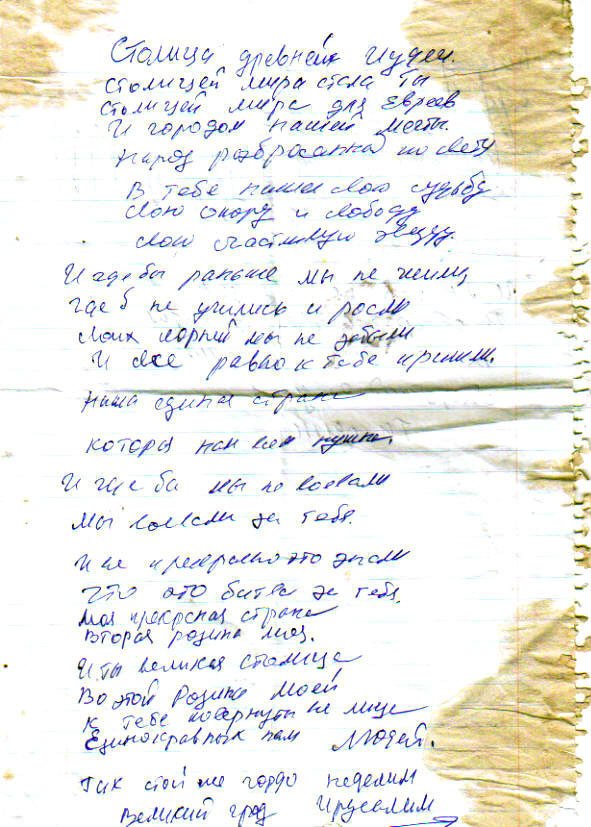 Столица древней Иудеи.
Столицей мира стала ты
Столицей мира для Евреев
И городом нашей мечты.
Народ разбросанной по свету
В тебе нашел свою судьбу
Свою опору и свободу
Свою счастливую звезду.
И где бы раньше мы не жили
Где б не учились и росли
Своих корней мы не забыли
И все равно к тебе пришли.
Наша единая страна
которая нам всем нужна.
И где бы мы не воевали
Мы воевали за тебя.
И все прекрасно это знали
Что это битва за тебя.
Моя прекрасная страна
Вторая родина моя.
И ты великая столица
Во этой Родине моей
К тебе повернуты все лица
Единокравных нам людей.
Так стой же гордо неделим
Великий град Ирусалим